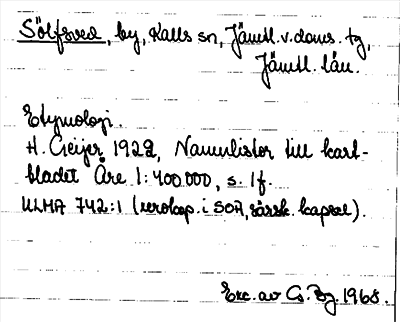 Sölfsved, by, Kalls sn, Jämtl. v. doms. tg,
Jämtl. län.
Etymologi.
H. Geijer 1922, Namnlistor till kart-
bladet Åre 1:400.000, s. 1 f.
ULMA 742:1 (xerokop. i SOA, särsk. kapsel).
Exc. av G. Bg. 1968.